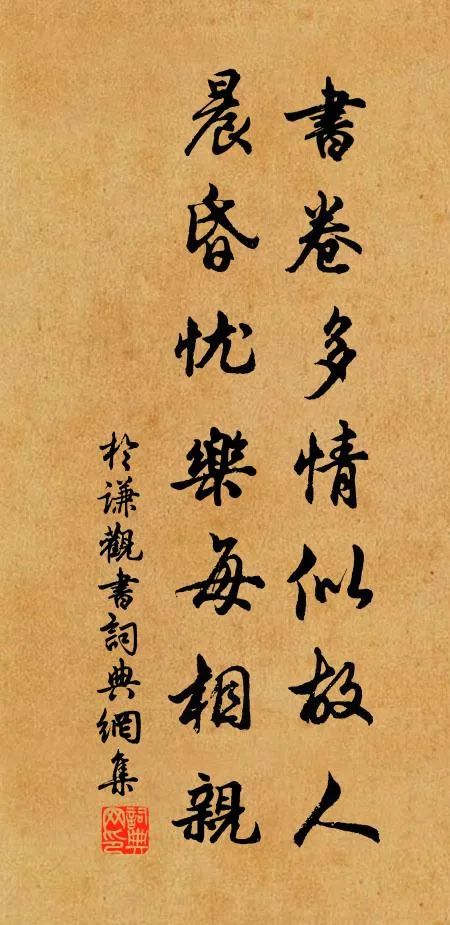 書卷多情似故人
晨昏忧樂每相親
於谦觀書詞典網集
詞典網印